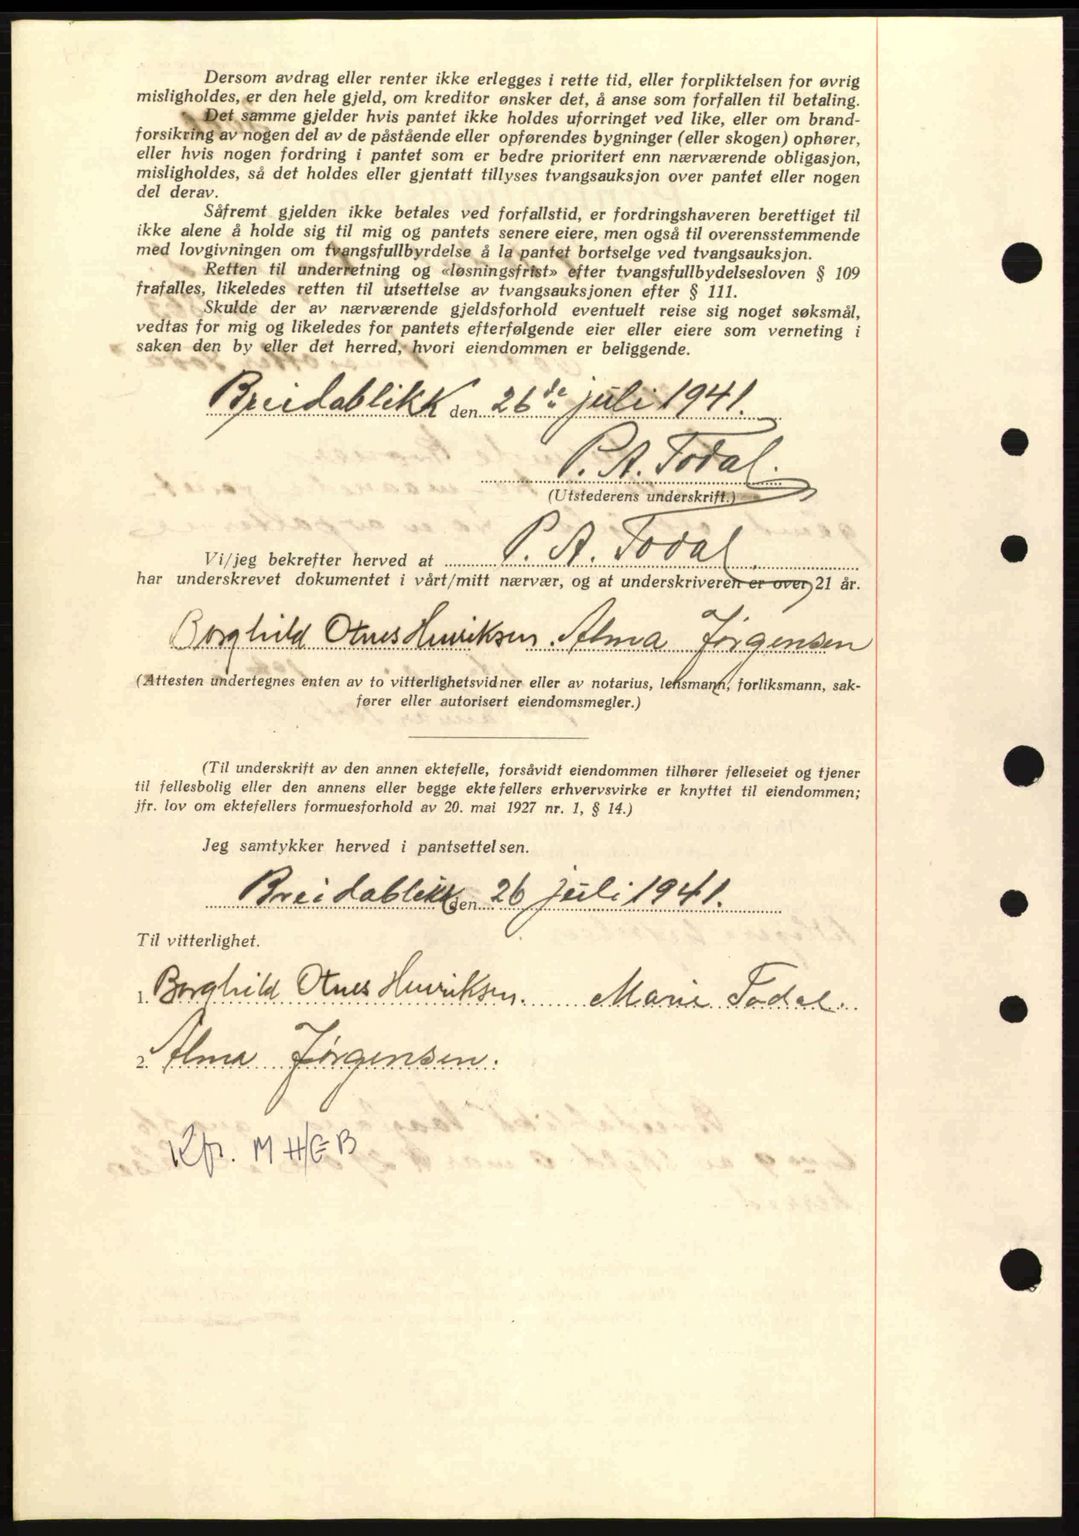 Dersom avdrag eller renter ikke erlegges i rette tid, eller forpliktelsen for øvrig
misligholdes, er den hele gjeld, om kreditor ønsker det, å anse som forfallen til betaling.
Det samme gjelder hvis pantet ikke holdes uforringet ved like, eller om brand-
forsikring av nogen del av de påstående eller opførendes bygninger (eller skogen) ophører,
eller hvis nogen fordring i pantet som er bedre prioritert enn nærværende obligasjon,
misligholdes, så det holdes eller gjentatt tillyses tvangsauksjon over pantet eller nogen
del derav.
Såfremt gjelden ikke betales ved forfallstid, er fordringshaveren berettiget til
ikke alene å holde sig til mig og pantets senere eiere, men også til overensstemmende
med lovgivningen om tvangsfullbyrdelse å la pantet bortselge ved tvangsauksjon.
Retten til underretning og «løsningsfrist» efter tvangsfullbydelsesloven § 109
frafalles, likeledes retten til utsettelse av tvangsauksjonen efter § 111.
Skulde der av nærværende gjeldsforhold eventuelt reise sig noget søksmål,
vedtas for mig og likeledes for pantets efterfølgende eier eller eiere som verneting i
saken den by eller det herred, hvori eiendommen er beliggende.
Breidablikk den 26de juli 1941.
P. A. Todal.
(Utstederens underskrift.)
Vi/jeg bekrefter herved at P. A. Todal
har underskrevet dokumentet i vårt/mitt nærvær, og at underskriveren er over 21 år.
Borghild Otnes Henriksen. Alma Jørgensen
(Attesten undertegnes enten av to vitterlighetsvidner eller av notarius, lensmann, forliksmann, sak-
fører eller autorisert eiendomsmegler.)
(Til underskrift av den annen ektefelle, forsåvidt eiendommen tilhører felleseiet og tjener
til fellesbolig eller den annens eller begge ektefellers erhvervsvirke er knyttet til eiendommen;
jfr. lov om ektefellers formuesforhold av 20. mai 1927 nr. 1, § 14.)
Jeg samtykker herved i pantsettelsen.
Breidablikk den 26 juli 1941.
Til vitterlighet.
1. Borghild Otnes Henriksen. Marie Todal.
2. Alma Jørgensen.
Kfr. MH/GB